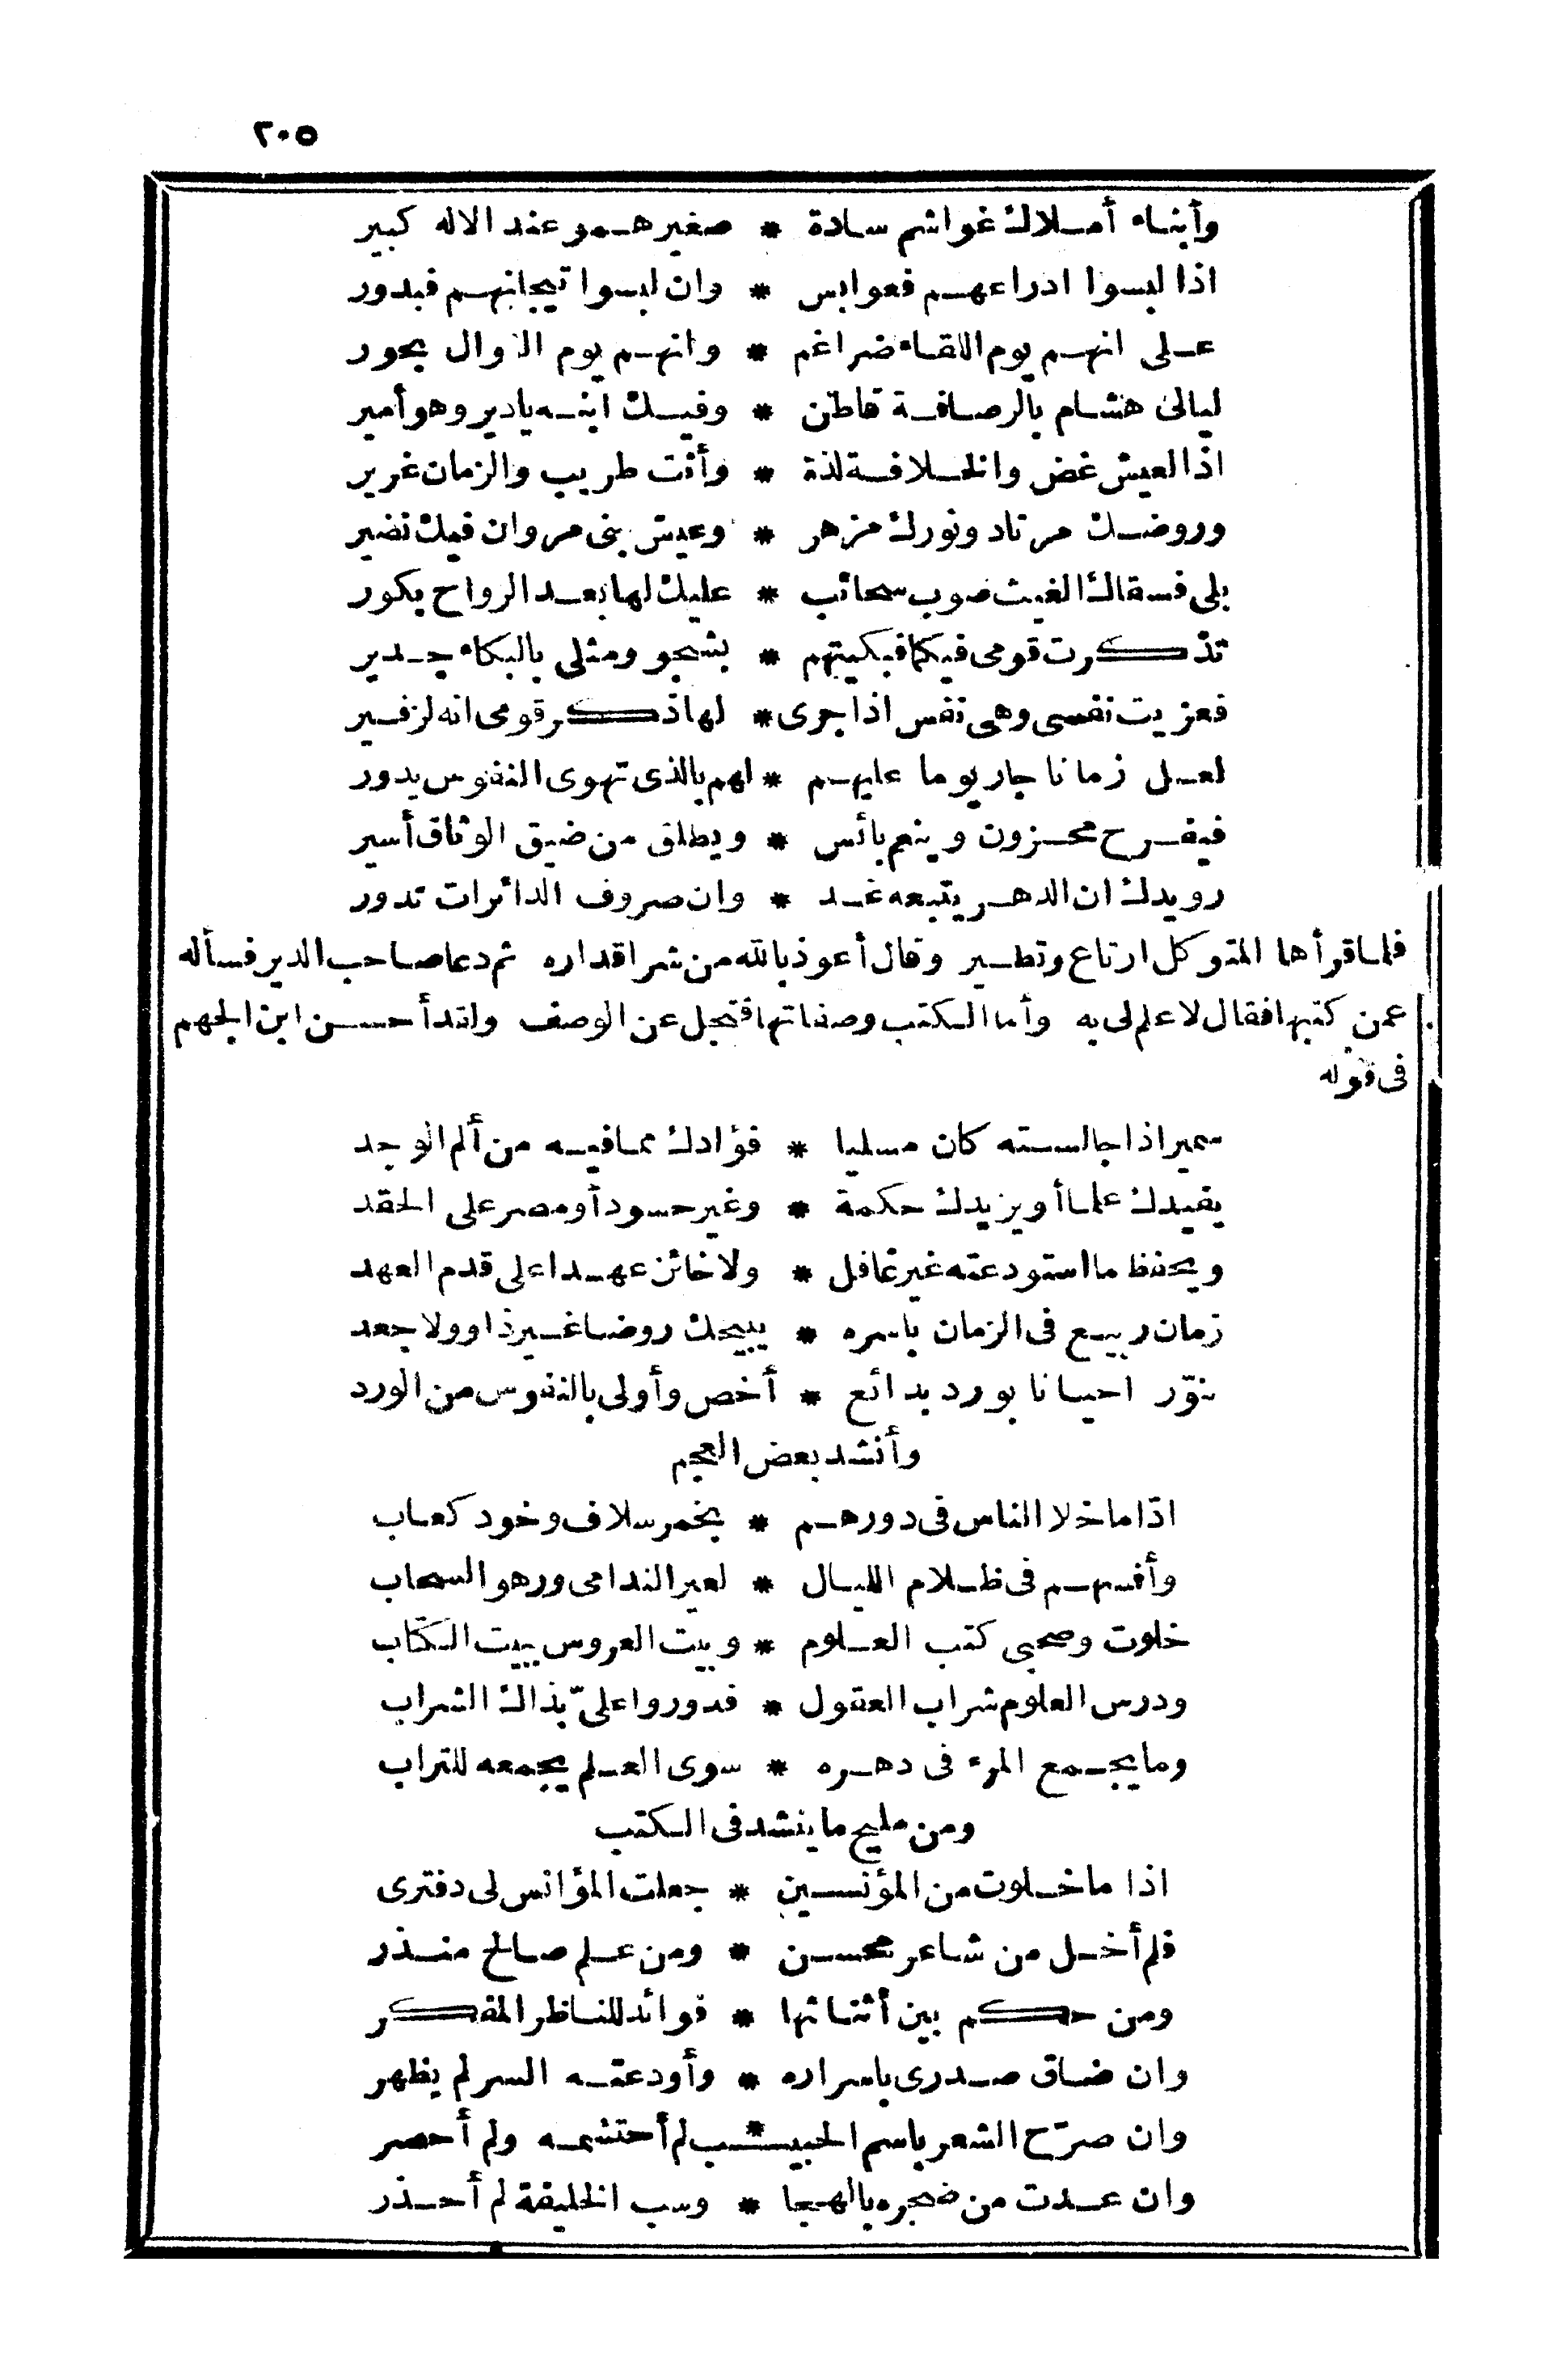 ٢٠٥
وأبناء أملاك غواشم سادة * صغيرهمو عند الاله كبير
اذا لبسوا ادراعهم فعوابس * وان لبسوا تيجانهم فبدور
على انهم يوم اللقاء ضراغم * وانهم يوم النوال بحور
ليالى هشام بالرصافة قاطن * وفيك ابنه يادير وهو أمير
اذا لعيش غض والخلافة لذة * وأنت طريب والزمان غرير
وروضك مرتاد ونورك مزهر * وعيش بنى مروان فيك نضير
بلى فسقاك الغيث صوب سحائب * عليك لها بعد الرواح بكور
تذكرت قومى فيكما فبكيتهم * بشجو ومثلى بالبكاء جدير
فعزيت نفسى وهى نفس اذا جرى * لها ذكر قومى انه لزفير
لعل زمانا جار يوما عليهم * لهم بالذى تهوى النفوس يدور
فيفرح محزون وينعم بائس * ويطلق من ضيق الوثاق أسير
رويدك ان الدهر يتبعه غد * وان صروف الدائرات تدور
فلما قرأها المتوكل ارتاع وتطير وقال أعوذ بالله من شر اقداره ثم دعا صاحب الدير فسأله
عمن كتبها فقال لا علم لى به وأما الكتب وصفاتها فتجل عن الوصف ولقد أحسن ابن الجهم
فى قوله
سمير اذا جالسته كان مسليا * فؤادك مما فيه من ألم الوجد
يفيدك علما أو يزيدك حكمة * وغير حسود أو مصر على الحقد
ويحفظ ما استودعته غير غافل * ولا خائن عهدا على قدم العهد
زمان ربيع فى الزمان باسره * يبيحك روضا غير ذاو ولا جعد
ينوّر احيانا بورد بدائع * أخص وأولى بالنفوس من الورد
وأنشد بعض العجم
اذا ما خلا الناس فى دورهم * بخمر سلاف وخود كعاب
وأنسهم فى ظلام الليال * لعير الندامى ورهو السحاب
خلوت وصحبى كتب العلوم * وبيت العروس ببيت الكتاب
ودرس العلوم شراب العقول * فدوروا علىّ بذاك الشراب
وما يجمع المرء فى دهره * سوى العلم يجمعه للتراب
ومن مليح ما ينشد فى الكتب
اذا ما خلوت من المؤنسين * جعلت المؤانس لى دفترى
فلم أخل من شاعر محسن * ومن علم صالح منذر
ومن حكم بين أثنائها * فوائد للناظر المفكر
وان ضاق صدرى باسراره * وأودعته السر لم يظهر
وان صرّح الشعر باسم الحبيب * لم أحتشمه ولم أحصر
وان عدت من ضجره بالهجا * وسب الخليفة لم أحذر